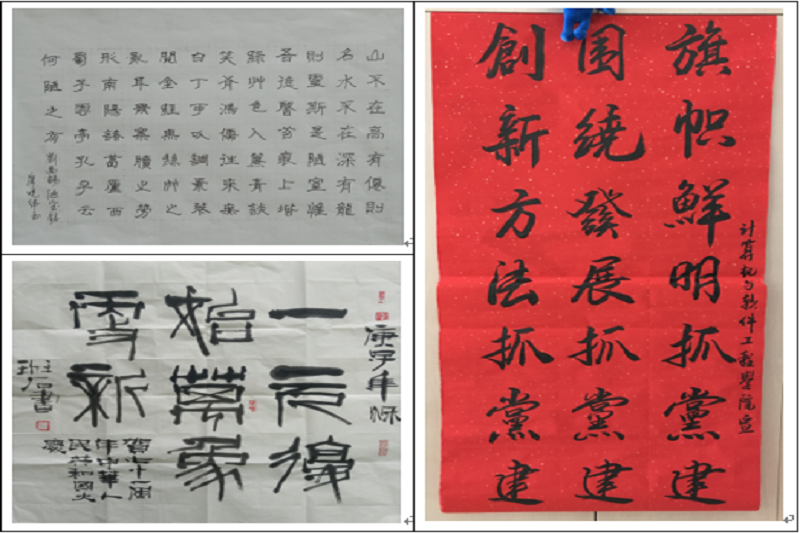 山不在高有僊則
名水不在深有龍
則靈斯是陋室惟
吾德馨苔痕上堦
綠艸色入簾青談
笑有鴻儒往來無
白丁可以調素琴
閱金經無絲竹之
亂耳無案牘之勞
形南陽諸葛廬西
蜀子雲亭孔子云
何陋之有
劉禹錫陋室銘
庚子年秋
一元復
始萬象
更新
賀七十一周
年中華人
民共和國大
慶
班石書
计算机与软件工程學院宣
旗帜鮮明抓黨建
围繞發展抓黨建
創新方法抓黨建